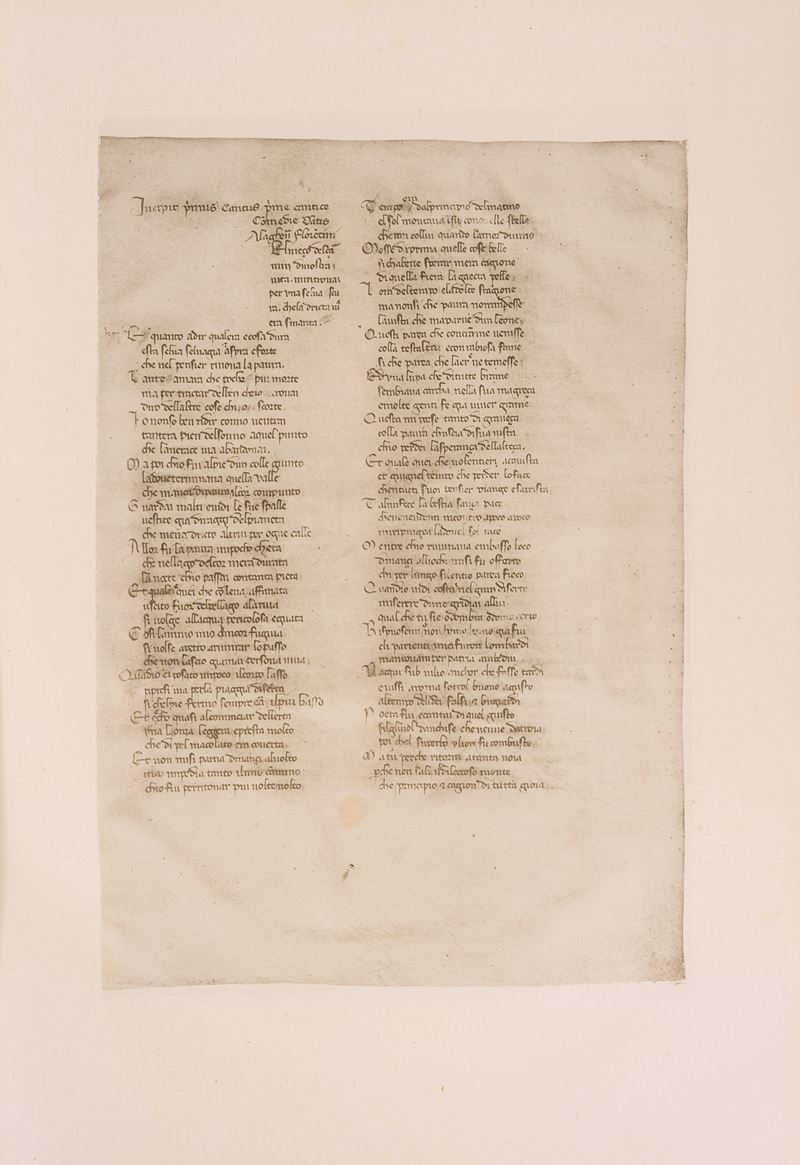 Incipit p̄mus Cantus p̄me cantice
Comedie Dātis
Alagherii Florētini
El meço delcā
min dinostra
uita. mi ritrouai
per vna selua . scu
ra. chela dricta ui
era smarita.
E quanto adir qualera e cosa dura
esta selua seluagia aspra eforte
che nel pensier rinoua la paura.
Tante amara che pocho piu morte
ma per tractar delben chio trouai
diro dellaltre cose chi o scorte
Io nonso ben ridir comio uentrai
tantera pien delsonno aquel punto
che lauerace uia abandonai.
Ma poi chio fui alpie dun colle giunto
ladoue terminaua quella ualle
che mauea dipaura ilcor compunto
Guardai inalto euidi le sue spalle
uestite gia deraggi delpianeta
che mena dricto altrui per ogne calle
Allor fu la paura unpocho cheta
che nellago delcor mera durata
la nocte chio passai contanta pieta
Et quale quei che cō lena affanata
uscito fuor delpelago alariua
si uolge allacqua pericolosa eguata
Cosi lanimo mio chancor fugiua
si uolse aretro arimirar lo passo
che non lascio giamai persona uiua
Quādio ei posato unpoco ilcorpo lasso
ripresi uia perla piaggia diserta
si chelpie fermo sempre era ilpiu basso
Et eccho quasi alcominciar dellerta
vna lonça leggera epresta molto
che di pel macolato era couerta.
Et non misi partia dinançi aluolto
ançi impedia tanto ilmio camino
chio fui perritornar piu uolte uolto
Tempo era dalprincipio delmatino
elsol montaua ī su con quelle stelle
cheran collui quando lamor diuino
Mosse diprima quelle cose belle
si chabene sperar mera cagione
di quella fiera lagaecta pelle
Lora deltempo eladolce stagione
ma nonsi che paura nonmidesse
lauista che maparue dun leone.
Questi parea che contrame uenisse
colla testalta econrabiosa fame
si che parea che laer ne temesse
Ed vna lupa che ditutte brame
sembiaua carcha nella sua magreça
emolte genti fe gia uiuer grame
Questa mi porse tanto di graueça
colla paura chuscia disua uista
chio perdei lasperança dellalteça.
Et quale quei che uolentieri acquista
et giugnel tempo che perder loface
chentutti suoi pensier piange esatrista
Talmifece la bestia sança pace
cheuenendomi incontro apoco apoco
miripingea ladouel sol tace
Mentre chio ruuinaua embasso loco
dinançi aliochi misi fu offerto
chi per lungo silentio parea fioco
Quandio uidi costui nel gran diserto
miserere dime gridai allui
qual che tu sie od ombra od omo certo
Rispuosemi non homo homo gia fui
eli parienti miei furon lombardi
mantouani per patria amēdui
Nacqui sub iulio anchor che fosse tardi
euissi aroma sottol buono agusto
altempo delidei falsi & bugiardi
Poeta fui ecantai di quel giusto
figliuol danchise che uenne datroia
poi chel superbo ylion fu combusto
Ma tu perche ritorni atanta noia
pche non sali ildilectoso monte
che principio & cagion di tutta gioia